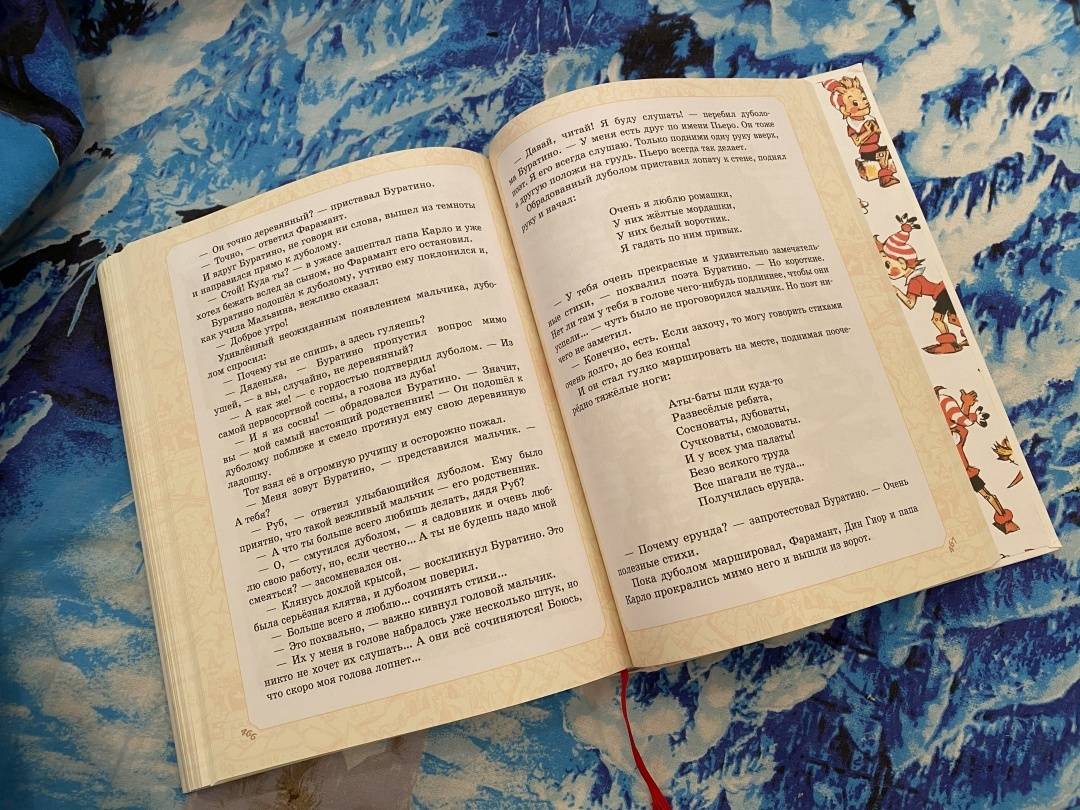 Он точно деревянный? — приставал Буратино.
— Точно, — ответил Фарамант.
И вдруг Буратино, не говоря ни слова, вышел из темноты
и направился прямо к дуболому.
— Стой! Куда ты? — в ужасе зашептал папа Карло и уже
хотел бежать вслед за сыном, но Фарамант его остановил.
Буратино подошёл к дуболому, учтиво ему поклонился и,
как учила Мальвина, вежливо сказал:
— Доброе утро!
Удивлённый неожиданным появлением мальчика, дубо-
лом спросил:
— Почему ты не спишь, а здесь гуляешь?
— Дяденька, — Буратино пропустил вопрос мимо
ушей, — а вы, случайно, не деревянный?
— А как же! — с гордостью подтвердил дуболом. — Из
самой первосортной сосны, а голова из дуба!
— И я из сосны! — обрадовался Буратино. — Значит,
вы — мой самый настоящий родственник! — Он подошёл к
дуболому поближе и смело протянул ему свою деревянную
ладошку.
Тот взял её в огромную ручищу и осторожно пожал.
— Меня зовут Буратино, — представился мальчик. —
А тебя?
— Руб, — ответил улыбающийся дуболом. Ему было
приятно, что такой вежливый мальчик — его родственник.
— А что ты больше всего любишь делать, дядя Руб?
— О, — смутился дуболом, — я садовник и очень люб-
лю свою работу, но, если честно... А ты не будешь надо мной
смеяться? — засомневался он.
— Клянусь дохлой крысой, — воскликнул Буратино. Это
была серьёзная клятва, и дуболом поверил.
— Больше всего я люблю... сочинять стихи...
— Это похвально, — важно кивнул головой мальчик.
— Их у меня в голове набралось уже несколько штук, но
никто не хочет их слушать... А они всё сочиняются! Боюсь,
что скоро моя голова лопнет...
466
— Давай, читай! Я буду слушать! — перебил дуболо-
ма Буратино. — У меня есть друг по имени Пьеро. Он тоже
поэт. Я его всегда слушаю. Только подними одну руку вверх,
а другую положи на грудь. Пьеро всегда так делает.
Обрадованный дуболом приставил лопату к стене, поднял
руку и начал:
Очень я люблю ромашки,
У них жёлтые мордашки,
У них белый воротник.
Я гадать по ним привык.
— У тебя очень прекрасные и удивительно замечатель-
ные стихи, — похвалил поэта Буратино. — Но короткие.
Нет ли там у тебя в голове чего-нибудь подлиннее, чтобы они
успели... — чуть было не проговорился мальчик. Но поэт ни-
чего не заметил.
— Конечно, есть. Если захочу, то могу говорить стихами
очень долго, до без конца!
И он стал гулко маршировать на месте, поднимая пооче-
рёдно тяжёлые ноги:
Аты-баты шли куда-то
Развесёлые ребята,
Сосноваты, дубоваты,
Сучковаты, смоловаты.
И у всех ума палаты!
Безо всякого труда
Все шагали не туда...
Получилась ерунда.
— Почему ерунда? — запротестовал Буратино. — Очень
полезные стихи.
Пока дуболом маршировал, Фарамант, Дин Гиор и папа
Карло прокрались мимо него и вышли из ворот.
467